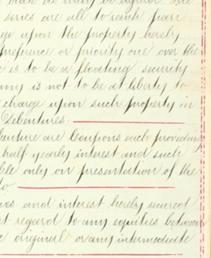 series are all to rank pari
upon the property hereby
preference or priority one over the
is to be a floating security
is not to be at liberty to
charge upon such property in
Debentures.
are Coupons each providing
half yearly interest and such
only on presentation of the
and interest hereby secured
regard to any equities between
original or any intermediate